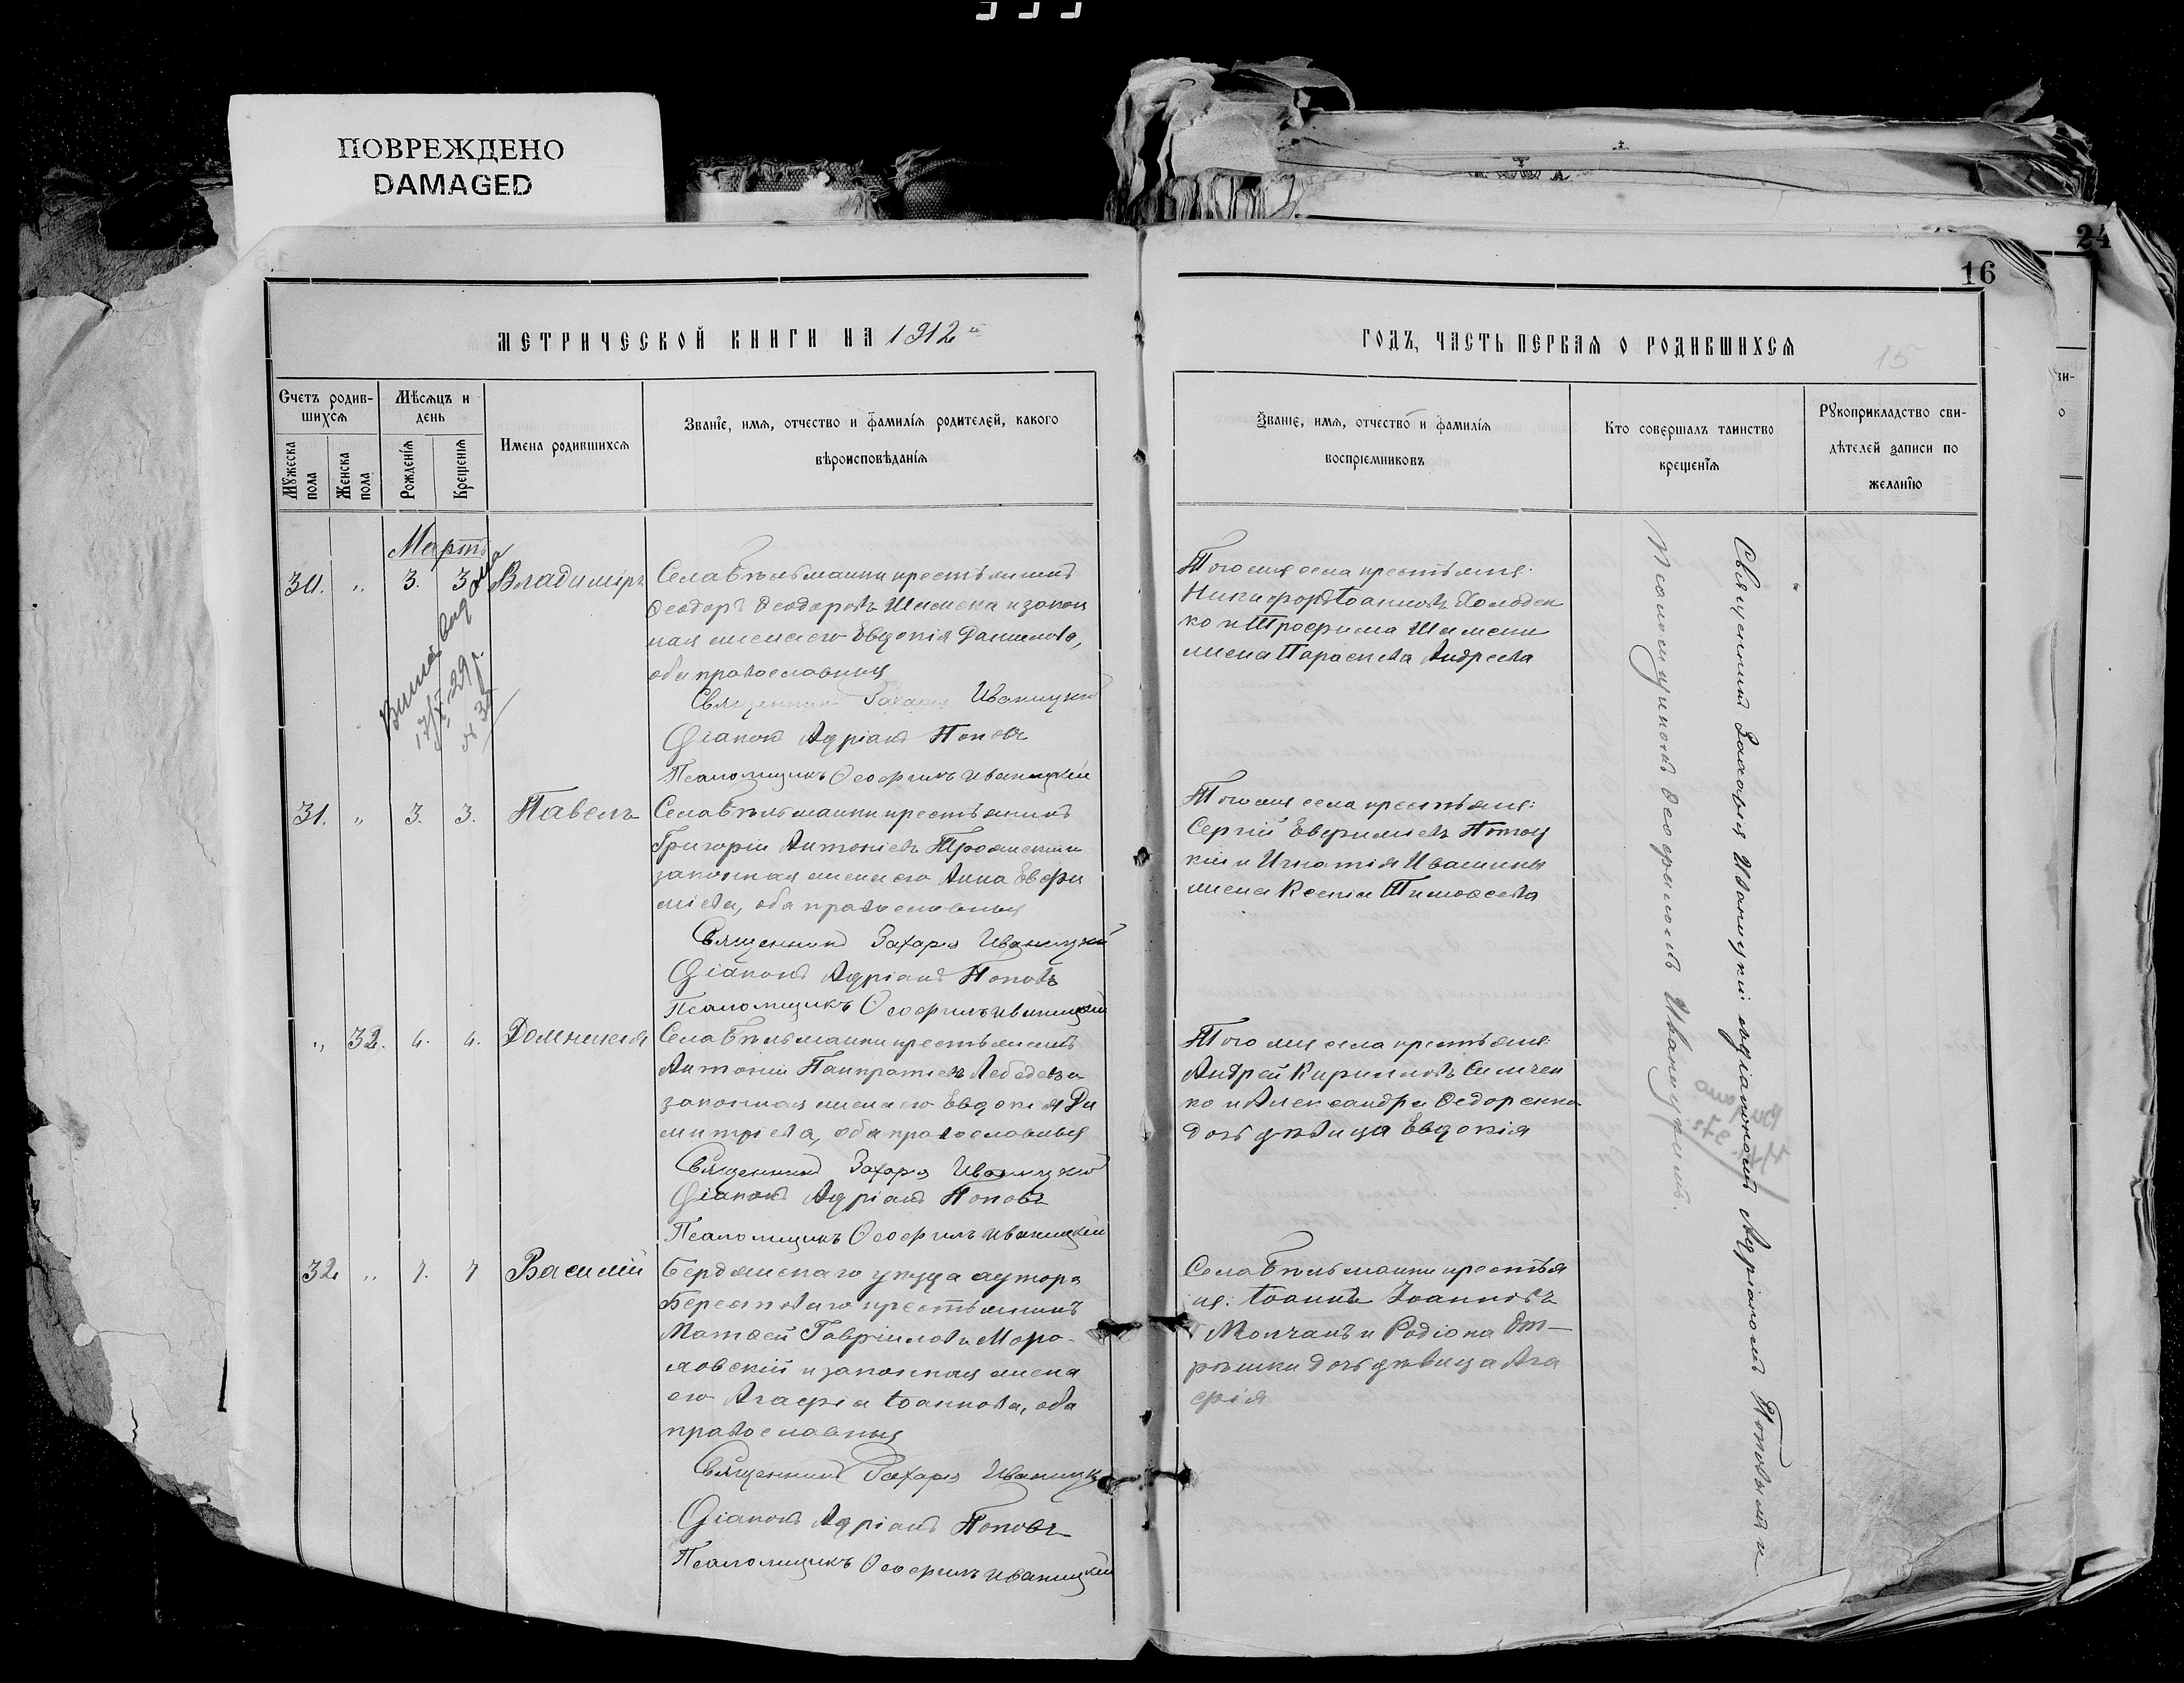 ПОВРЕЖДЕНО
DAMAGED
24
16
15
МЕТРИЧЕСКОЙ КНИГИ НА 1912й
ГОДЪ, ЧАСТЬ ПЕРВАЯ О РОДИВШИХСЯ
Счетъ родив-
шихся
Мужеска
пола
Женска
пола
Мѣсяцъ и
день
Рожденія
Крещенія
Имена родившихся
Званіе, имя, отчество и фамилія родителей, какого
вѣроисповѣданія
Званіе, имя, отчество и фамилія
воспріемниковъ
Кто совершалъ таинство
крещенія
Рукоприкладство сви-
дѣтелей записи по
желанію
Мартъ
30. " 3. 3 Владиміръ
Села Бѣльманки крестьянинъ
Ѳеодоръ Ѳеодоровъ Шамека и закон
ная жена его Евдокія Данилова,
оба православныя
Священникъ Захарія Иваницкій
Діаконъ Адріанъ Поповъ
Псаломщикъ Ѳеофилъ Иваницкій
Того же села крестьяне:
Никифоръ Іоанновъ Холоден
ко и Трофима Шамеки
жена Параскева Андреева
31. " 3. 3. Павелъ
Села Бѣльманки крестьянинъ
Григорій Антоніевъ Троянскій и
законная жена его Анна Евфи
міева, оба православныя
Священникъ Захарія Иваницкій
Діаконъ Адріанъ Поповъ
Псаломщикъ Ѳеофилъ Иваницкій
Того же села крестьяне:
Сергій Евфиміевъ Потоц
кій и Игнатія Ивашины
жена Ксенія Тимоѳеева
" 32. 4. 4. Домникія
Села Бѣльманки крестьянинъ
Антоній Панкратіевъ Лебедь и
законная жена его Евдокія Ди
митріева, оба православныя
Священникъ Захарія Иваницкій
Діаконъ Адріанъ Поповъ
Псаломщикъ Ѳеофилъ Иваницкій
Того же села крестьяне:
Андрей Кирилловъ Силичен
ко и Александра Ѳедоренко
дочь дѣвица Евдокія
32. " 7. 7 Василій
Бердянскаго уѣзда хутора
Берестоваго крестьянинъ
Матѳей Гавріиловъ Мора-
ловскій и законная жена
его Агафія Іоаннова, оба
православныя
Священникъ Захарія Иваницк
Діаконъ Адріанъ Поповъ
Псаломщикъ Ѳеофилъ Иваницкій
Села Бѣльманки крестья
не: Іоаннъ Іоанновъ
Молчанъ и Родіона От-
рѣшки дочь дѣвица Ага
фія
Священникъ Захарія Иваницкій съ діакономъ Адріаномъ Поповымъ и
Псаломщикомъ Ѳеофиломъ Иваницкимъ.